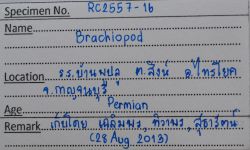 Specimen No. RC2557-16
Name
Brachiopod
Location ร.ร.บ้านพุปลู ต.สิงห์ อ.ไทรโยค
จ.กาญจนบุรี
Age Permian
Remark เก็บโดย เฉลิมพร, ทิวาพร, สุธารัตน์
(28 Aug 2013)